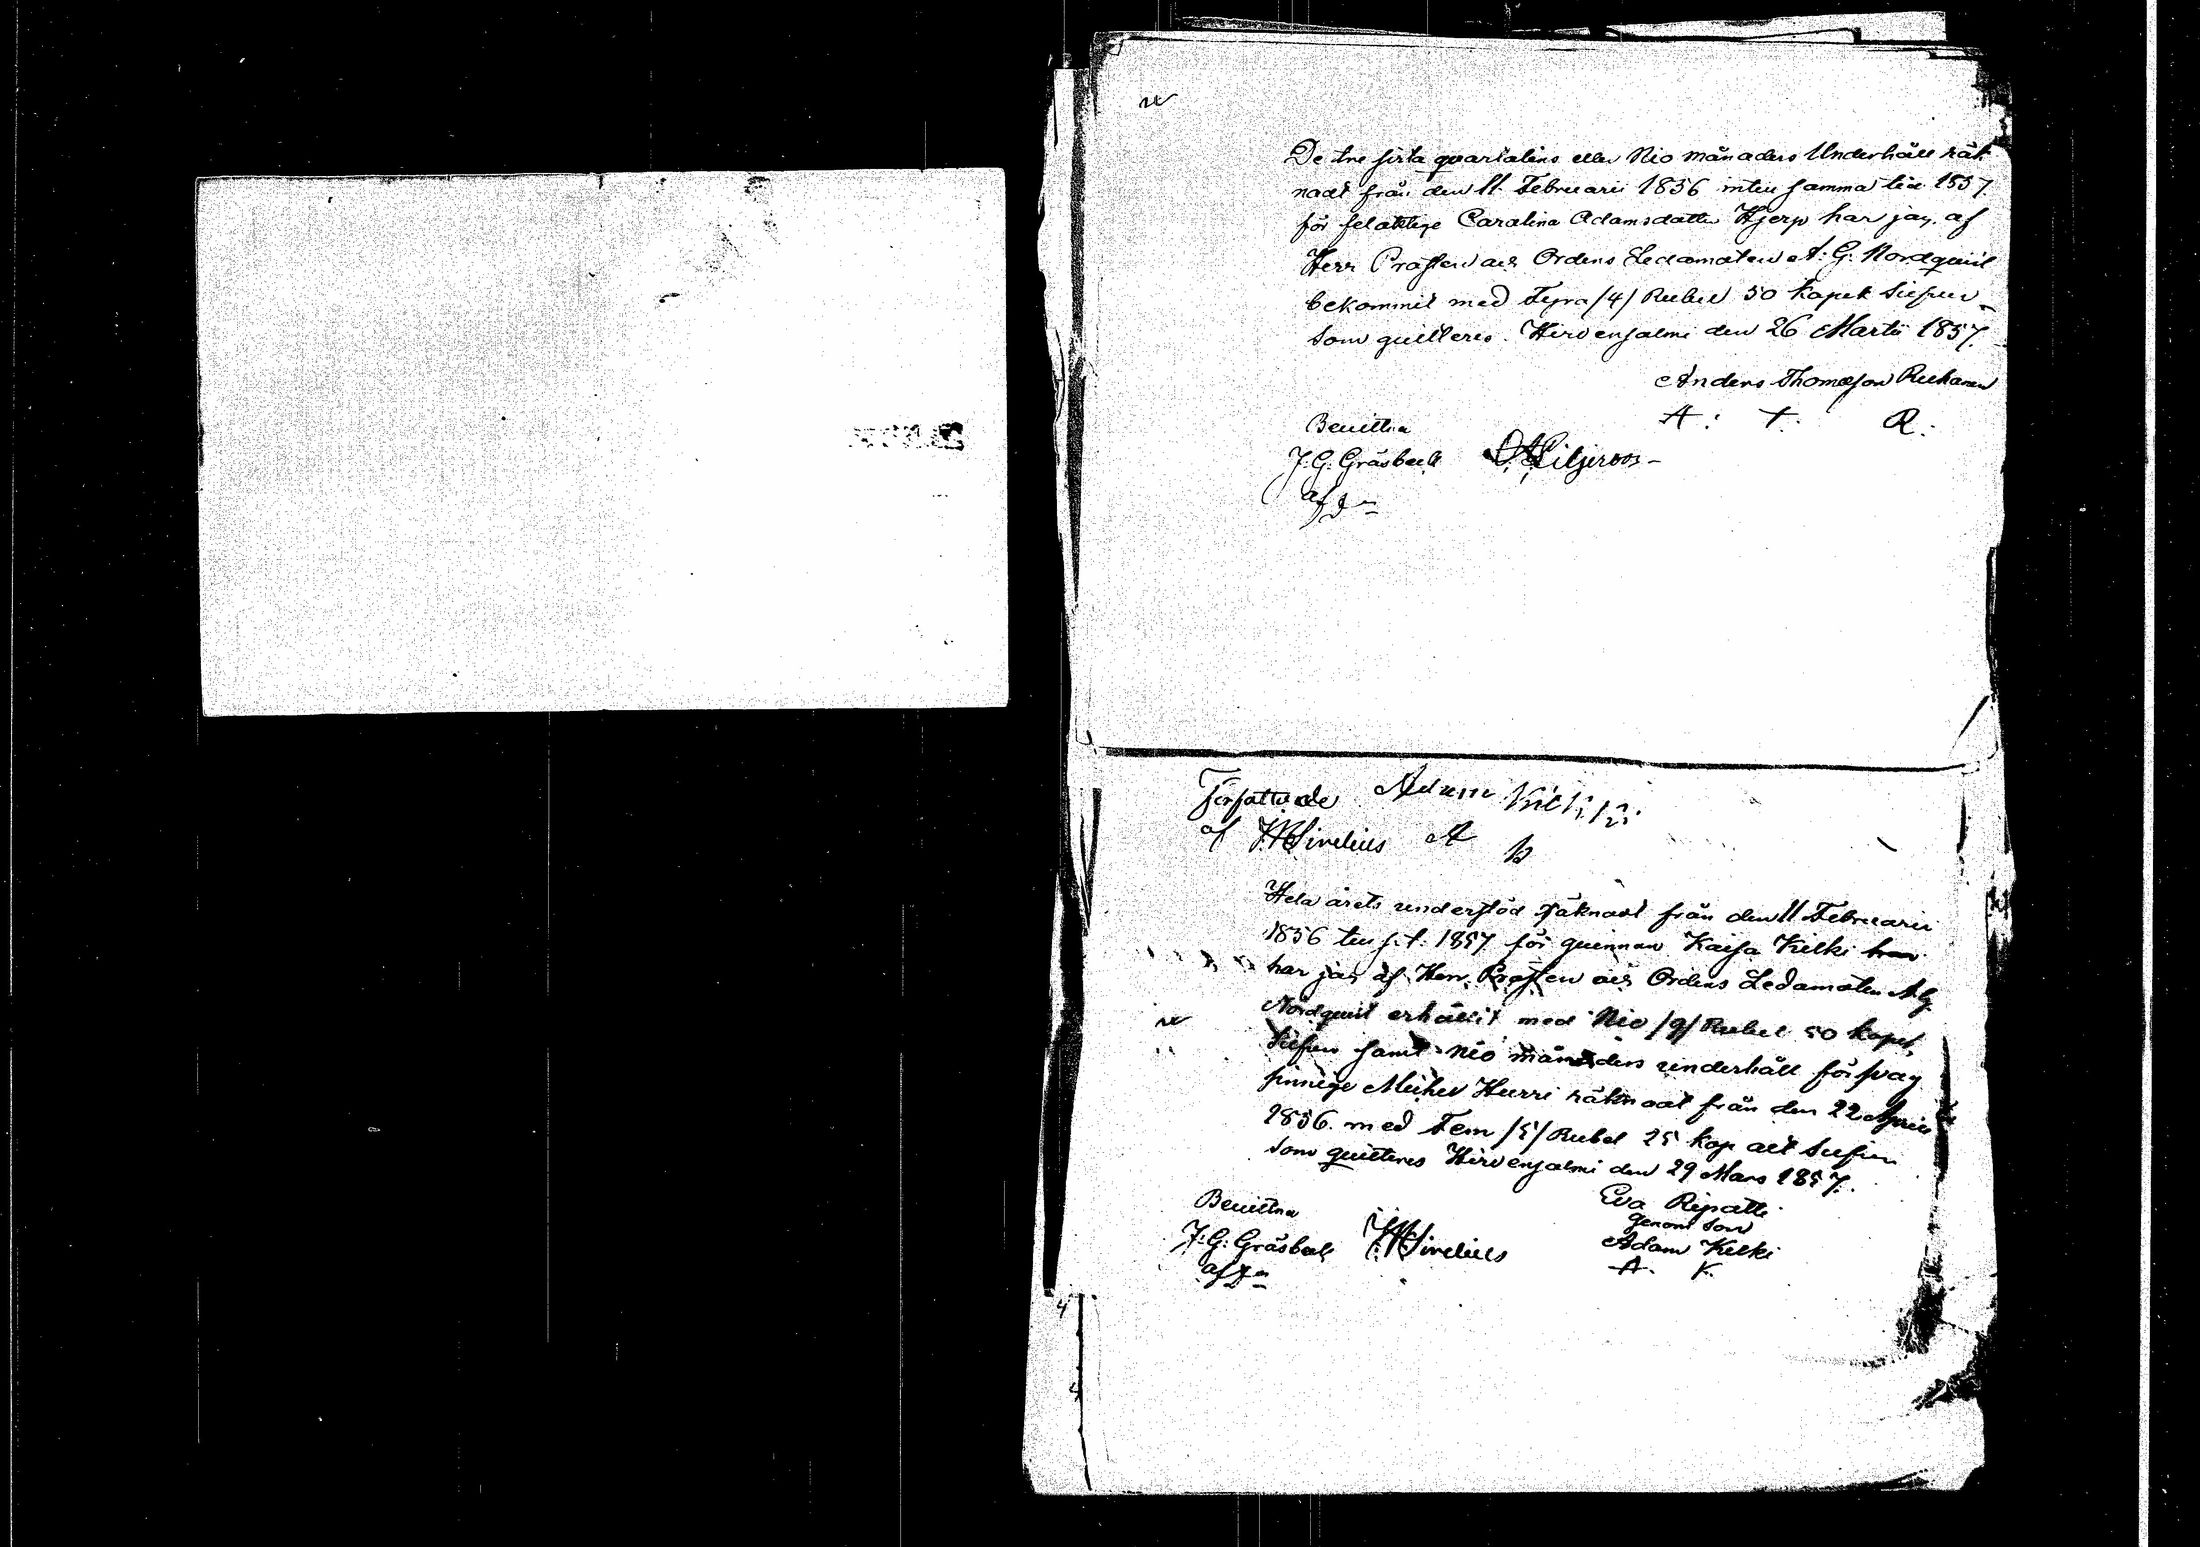 De tre sista quartalens eller Nio månaders Underhåll räk-
nadt från den 11 Februarii 1856 intill samma tid 1857
för felaktige Carolina Adamsdotter Hjerp har jag af
Herr Prosten och Ordens Ledamoten A: G: Nordquist
bekommit med Fyra /4/ Rubel 50 kopek Silfver
som quitteres. Hirvensalmi den 26 Martii 1857.
Anders Thomasson Ruhanen
A: T. R.
Bevittna
J: G: Gräsbeck Liljeroos
Författade Adam Kilkki
af Sirelius A K
Hela årets understöd räknadt från den 11 Februarii
1856 till s. t. 1857 för quinnan Kaisa Kilki
har jag af Herr Prosten och Ordens Ledamoten A G
Nordquist erhållit med Nio /9/ Rubel 50 kopek
Silfver samt nio månaders underhåll för svag
sinnige Michel Hurri räknadt från den 22 April
1856. med Fem /5/ Rubel 25 kop allt Silfver
som quitteres Hirvensalmi den 29 Mars 1857.
Bevittna Eva Ripatti
genom son
J: G: Gräsbeck Sirelius Adam Kilki
A. K.